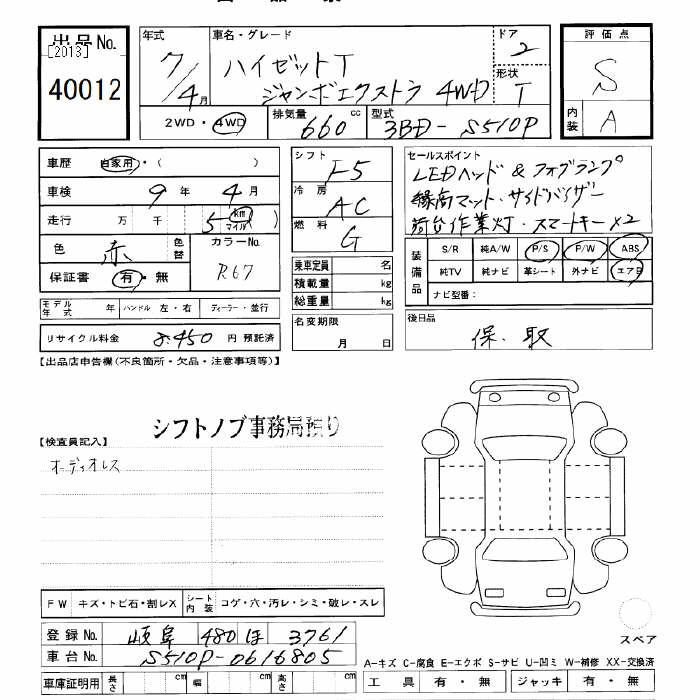 出品No.
[2013]
40012
年式
7/4月
車名・グレード
ハイゼットT
ジャンボエクストラ 4WD
ドア
2
形状
T
評価点
S
内装
A
2WD・4WD
排気量
660
cc
型式
3BD-S510P
車歴
自家用・( )
車検
9年4月
走行
万 千
5
km
マイル
色
赤
色替
カラーNo.
R67
保証書
有・無
シフト
F5
冷房
AC
燃料
G
乗車定員 名
積載量 kg
総重量 kg
セールスポイント
LEDヘッド & フォグランプ
縁高マット・サイドバイザー
荷台作業灯・スマートキー×2
装備品
S/R 純A/W P/S P/W ABS
純TV 純ナビ 革シート 外ナビ エアB
ナビ型番:
モデル年式 年 ハンドル 左・右 ディーラー・並行
リサイクル料金 8,450 円 預託済
名変期限
月 日
後日品
保.取
【出品店申告欄(不良箇所・欠品・注意事項等)】
シフトノブ事務局預り
【検査員記入】
オーディオレス
FW キズ・トビ石・割レX
シート内装 コゲ・穴・汚レ・シミ・破レ・スレ
登録No. 岐阜 480 ほ 3761
車台No. S510P-0616805
車庫証明用 長さ cm 幅 cm 高さ cm
スペア
A-キズ C-腐食 E-エクボ S-サビ U-凹ミ W-補修 XX-交換済
工具 有・無 ジャッキ 有・無